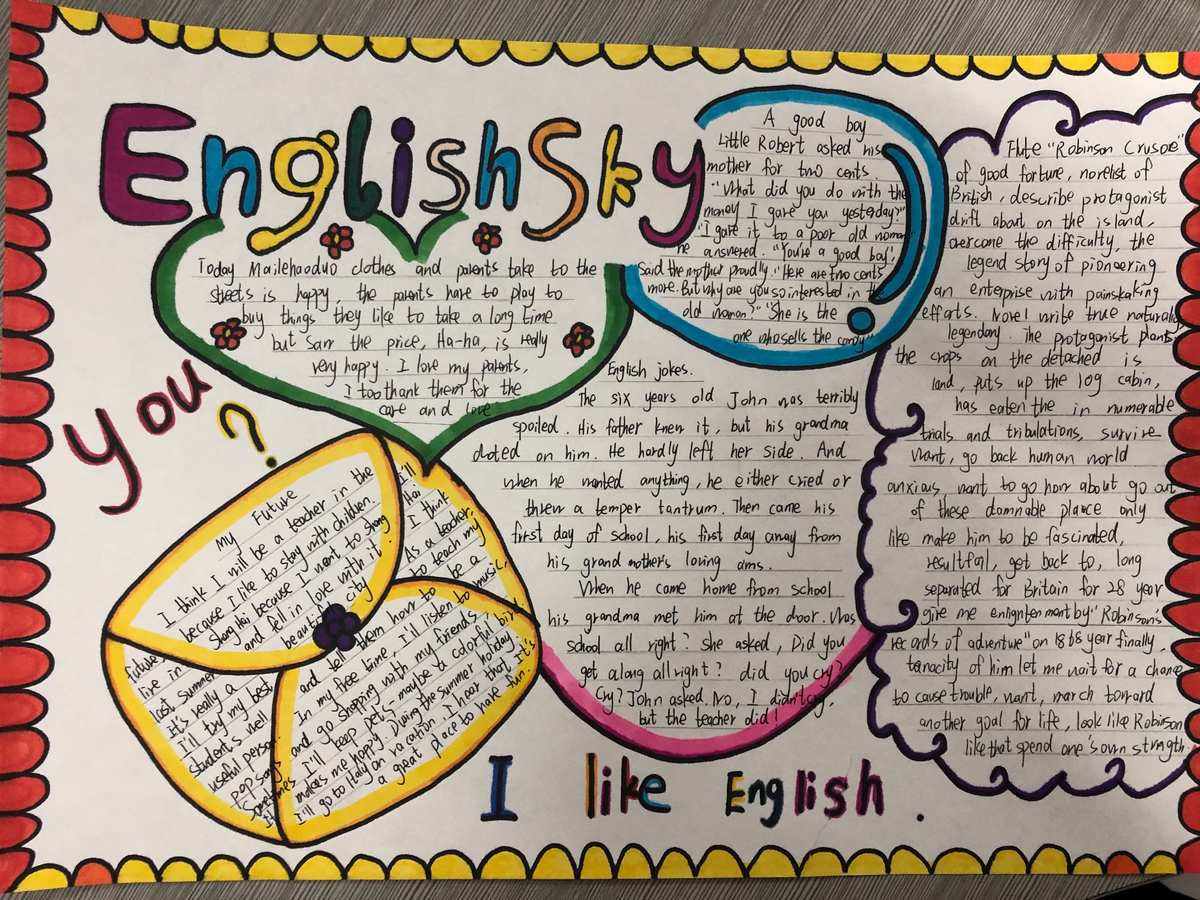 English Sky
Today Mailehaoduo clothes and parents take to the
streets is happy, the parents have to play to
buy things they like to take a long time
but sarr the price, Ha-ha, is really
very happy. I love my parents,
I too thank them for the
care and love
A good boy
Little Robert asked his
mother for two cents.
"What did you do with the
money I gave you yesterday?"
"I gave it to a poor old woman"
he answered. "You're a good boy",
Said the mother proudly. "Here are two cents
more. But why are you so interested in the
old woman?" "She is the
one who sells the candy"
Flute "Robinson Crusoe"
of good forture, novelist of
British, describe protagonist
drift about on the island,
overcome the difficulty, the
legend story of pioneering
an enterprise with painskaking
efforts. Novel write true naturally
legendary. The protagonist plants
the crops on the detached is
land, puts up the log cabin,
has eaten the in numerable
trials and tribulations, survire
want, go back human world
anxious want to go horr about go out
of these damnable plawce only
like make him to be fascinated,
resultfal, get back to, long
separated for Britain for 28 year
give me enligntenment by "Robinson's
records of adventure" on 1868 year finally,
tanacity of him let me wait for a chance
to cause trouble, want, march toward
another goal for life, look like Robinson
like that spend one's own strength
English jokes.
The six years old John was terribly
spoiled. His father knew it, but his grandma
doted on him. He hardly left her side. And
when he wanted anything, he either cried or
threw a temper tantrum. Then came his
first day of school, his first day away from
his grand mother's loving ams.
When he came home from school
his grandma met him at the door. Was
school all right? She asked, Did you
get along all right? did you cry?
Cry? John asked. No, I didn't cry,
but the teacher did!
you ?
My Future
I think I will be a teacher in the
because I like to stay with children.
Shang Hai because I went to Shang
and fell in love with it.
beautiful city
I'll
Hai
I think
As a teacher,
to teach my
be a
future
live in
last summer
It's really a
I'll try my best
student's well
useful person
pop songs
Sometimes
It
and tell them how to
In my free time, I'll listen to music,
and go shopping with my friends.
I'll keep pets, maybe a colorful bird.
makes me happy. During the summer holiday,
I'll go to Italy on vacation. I hear that it's
a great place to have fun.
I like English.